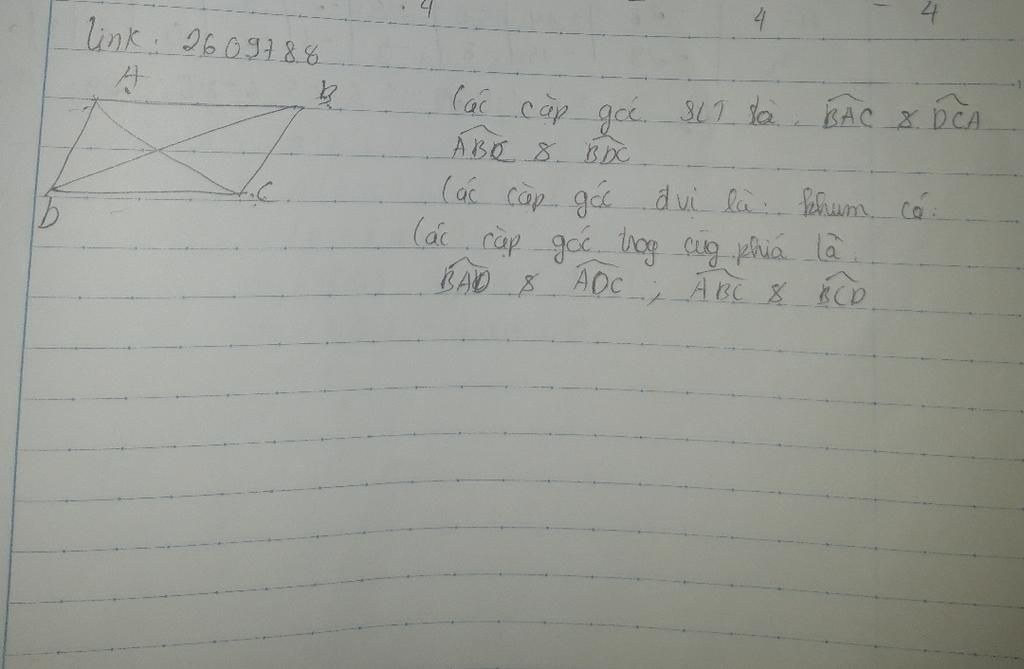 4 4 4
link: 2609788
A B
Các cặp góc SLT là: BAC & DCA
ABD & BDC
D C
Các cặp góc đvị là: khum có.
Các cặp góc trog cùg phiá là:
BAD & ADC ; ABC & BCD